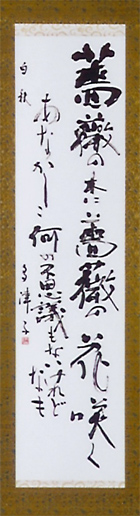 薔薇の木に薔薇の花咲く
白秋
あなかしこ何の不思議もないけれど
なも